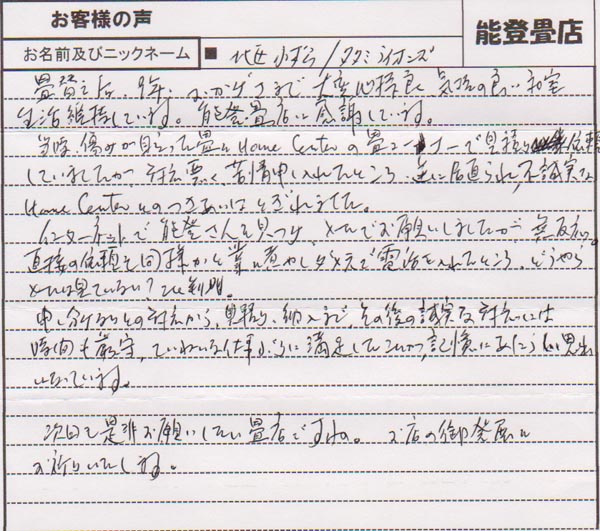 お客様の声
能登畳店
お名前及びニックネーム ■ /タクミライオンズ
畳替えし、9年、おかげさまで大変心様良く気持の良い和室
生活維持しています。能登畳店に感謝しています。
当時傷みが目立った畳を Home Center の畳コーナーで見積り依頼
していましたが、対応悪く苦情申し入れたところ 逆に居直られ、不誠実な
Home Center とのつきあいはとぎれました。
インターネットで能登さんを見つけ メールでお願いしましたが、無反応。
直接の依頼も同様かと業を煮やし ダメ元で電話を入れたところ、どうやら
メールは見ていない?と判明。
申し分けないとの対応から、見積り、納入まで、その後の誠実な対応には
時間も厳守、ていねいな仕事ぶりに満足したことが、記憶にあたらしい思い出
になっています。
次回も是非お願いしたい畳店ですね。 お店の御発展を
お祈りいたします。